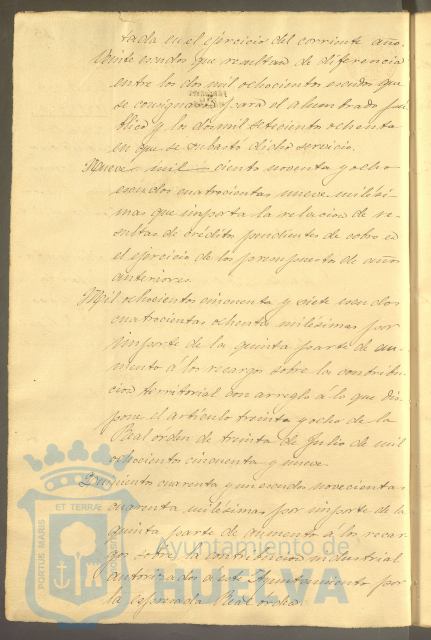 tada en el ejercicio del corriente año.
Veinte escudos que resultan de diferencia
entre los dos mil ochocientos escudos que
se consignaron para el alumbrado pú
blico y los dos mil setecientos ochenta
en que se subastó dicho servicio.
Nueve mil ciento noventa y ocho
escudos cuatrocientas nueve milési
mas que importa la relacion de re-
sultas de crédito pendientes de cobro en
el ejercicio de los presupuestos de años
anteriores.
Mil ochocientos cincuenta y siete escudos
cuatrocientas ochenta milésimas por
importe de la quinta parte de au-
mento á los recargos sobre la contribu
cion territorial con arreglo á lo que dis
pone el artículo treinta y ocho de la
Real orden de treinta de Julio de mil
ochocientos cincuenta y nueve.
Quinientos cuarenta y un escudos novecientas
cuarenta milésimas por importe de la
quinta parte de aumento á los recar
gos sobre la contribucion industrial
autorizados á este Ayuntamiento por
la espresada Real orden.
PORTUS MARIS ET TERRAE
Ayuntamiento de
HUELVA